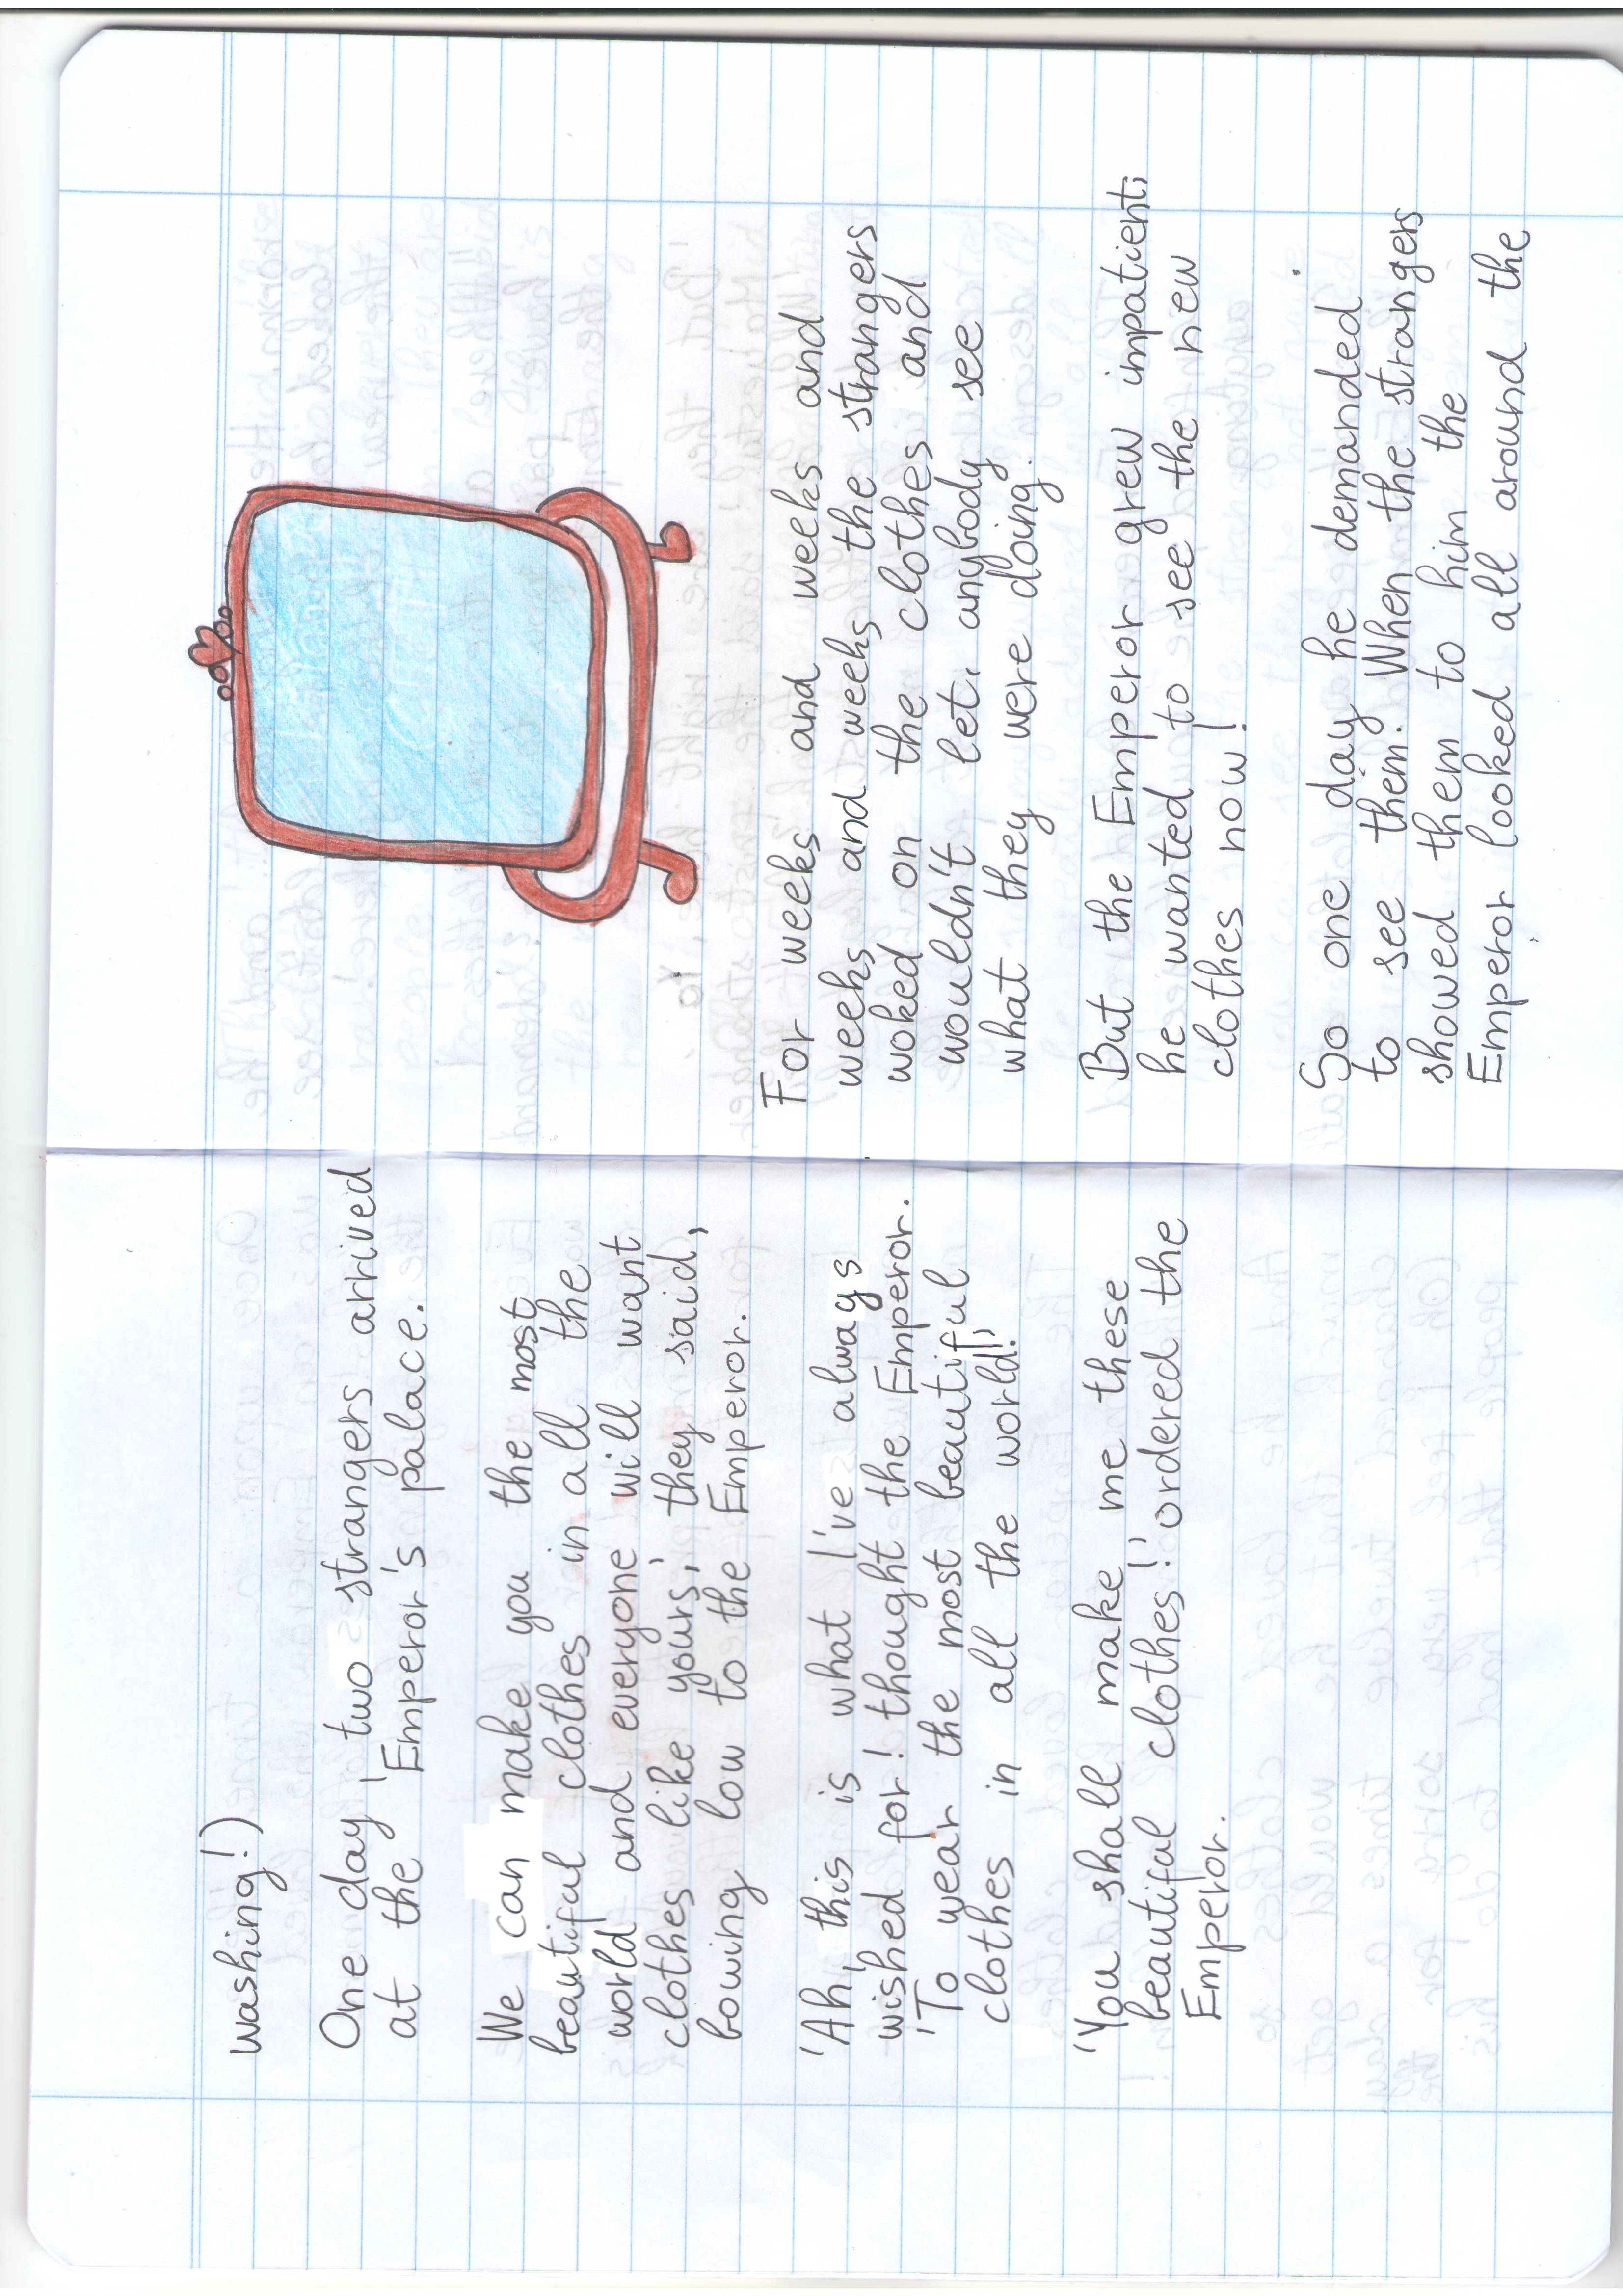 washing!)
One day, two strangers arrived
at the Emperor's palace.
We can make you the most
beautiful clothes in all the
world and everyone will want
clothes like yours,' they said,
bowing low to the Emperor.
'Ah, this is what I've always
wished for! thought the Emperor.
'To wear the most beautiful
clothes in all the world!'
'You shall make me these
beautiful clothes!' ordered the
Emperor.
For weeks and weeks and
weeks and weeks the strangers
woked on the clothes and
wouldn't let, anybody see
what they were doing.
But the Emperor grew impatient,
he wanted to see the new
clothes now!
So one day he demanded
to see them. When the strangers
showed them to him the
Emperor looked all around the